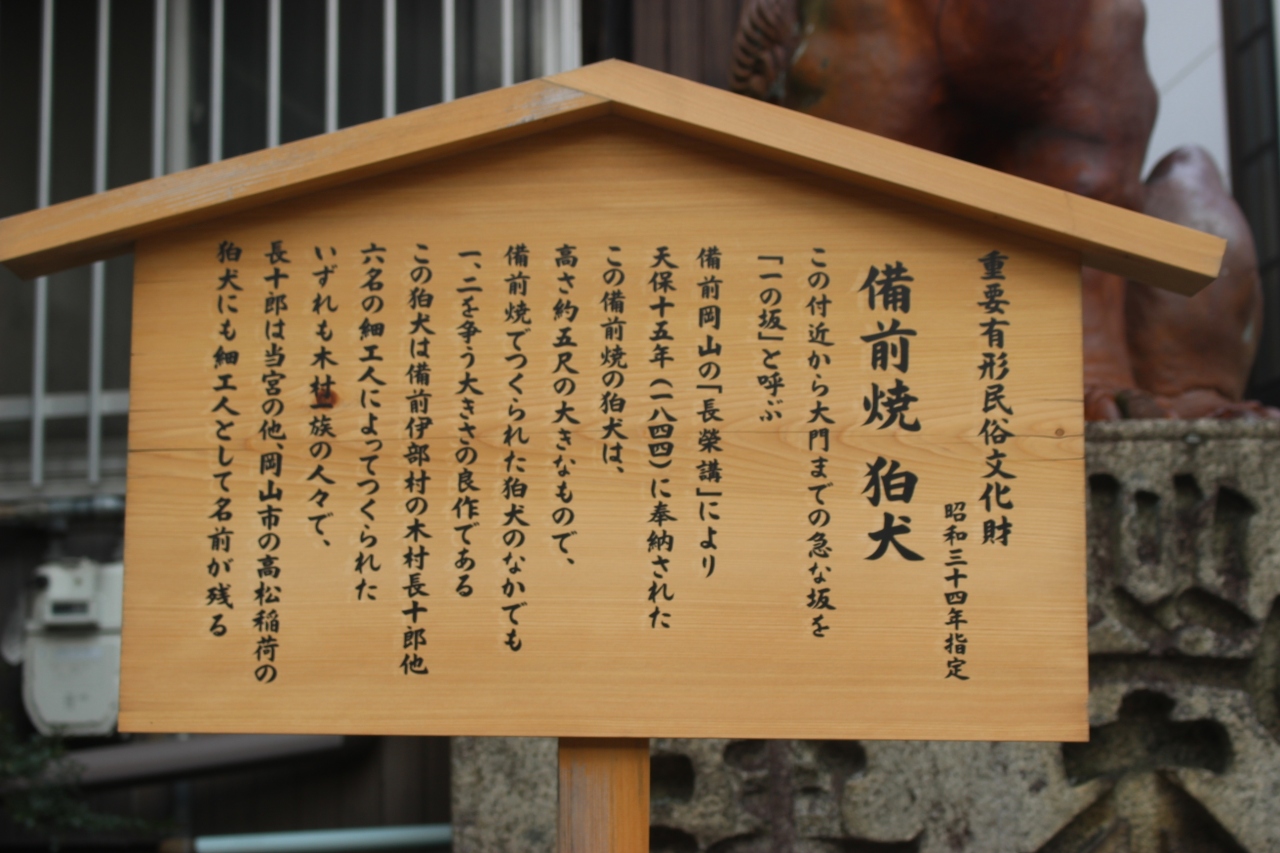 重要有形民俗文化財
昭和三十四年指定
備前焼 狛犬
この付近から大門までの急な坂を
「一の坂」と呼ぶ
備前岡山の「長榮講」により
天保十五年(一八四四)に奉納された
この備前焼の狛犬は、
高さ約五尺の大きなもので、
備前焼でつくられた狛犬のなかでも
一、二を争う大きさの良作である
この狛犬は備前伊部村の木村長十郎他
六名の細工人によってつくられた
いずれも木村一族の人々で、
長十郎は当宮の他、岡山市の高松稲荷の
狛犬にも細工人として名前が残る